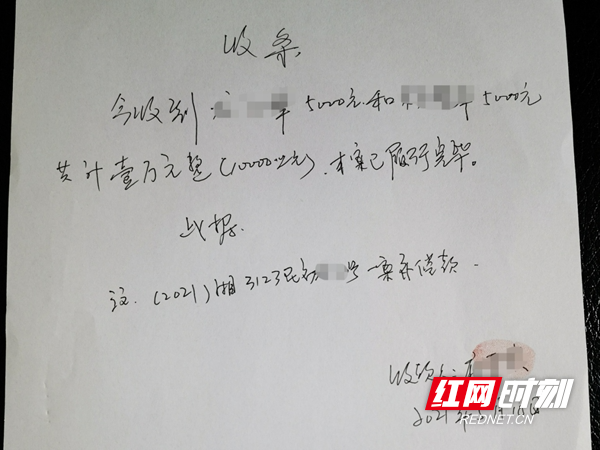 收条
今收到 5000元和 5000元
共计壹万元整(10000元),本案已履行完毕。
此据.
注:(2021)湘3123民初 号一案系偿款.
收领人:
2021年 月 日
红网时刻
REDNET.CN